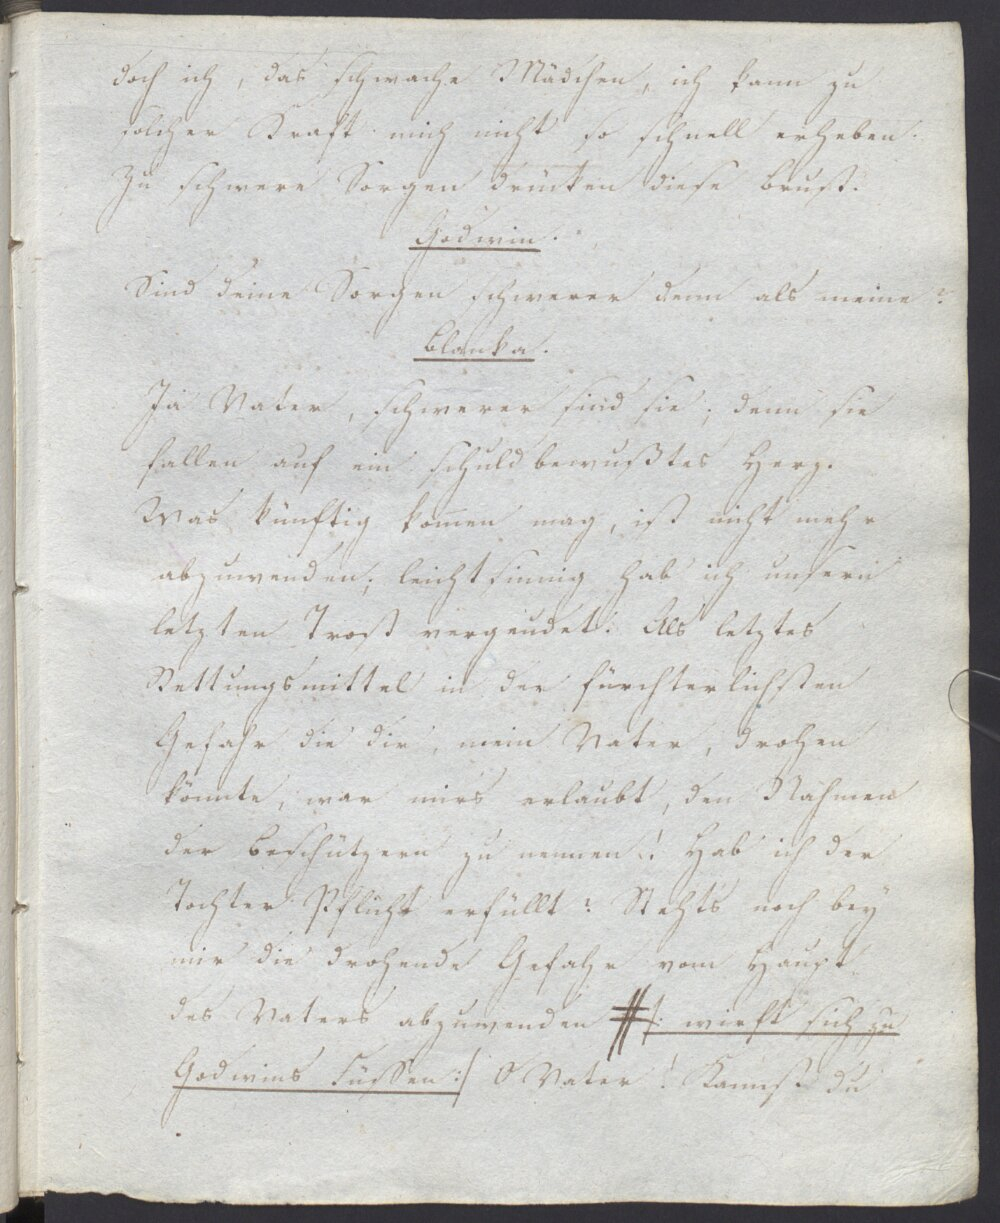 doch ich, das schwache Mädchen, ich kann zu
solcher Kraft mich nicht so schnell erheben.
Zu schwere Sorgen drücken diese Brust.
Godwin.
Sind deine Sorgen schwerer denn als meine?
Blanka.
Ja Vater, schwerer sind sie; denn sie
fallen auf ein schuldbewußtes Herz.
Was künftig kommen mag, ist nicht mehr
abzuwenden; leichtsinnig hab' ich unsern
letzten Trost vergeudet. Als letztes
Rettungsmittel in der fürchterlichsten
Gefahr die dir, mein Vater, drohen
könnte, war mirs erlaubt, den Nahmen
der Beschützern zu nennen! Hab' ich der
Tochter Pflicht erfüllt? Stehts noch bey
mir die drohende Gefahr vom Haupt
des Vaters abzuwenden # /: wirft sich zu
Godwins Füssen :/ O Vater! Kannst du